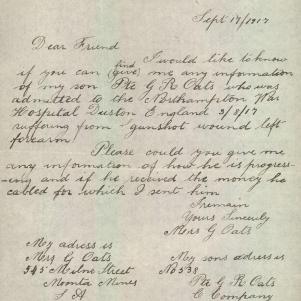 Sept 17/1917
Dear Friend
I would like to know
if you can find (give) me any information
of my son Pte G R Oats who was
admitted to the Northampton War
Hospital Duston England 3/8/17
suffering from gunshot wound left
forearm
Please could you give me
any information of how he is progress-
-ing and if he received the money he
cabled for which I sent him
I remain
Yours Sincerly
Mers G Oats
My adress is
Mers G Oats
345 Milne Street
Moonta Mines
S A
My sons adress is
No 538
Pte G R Oats
C Company